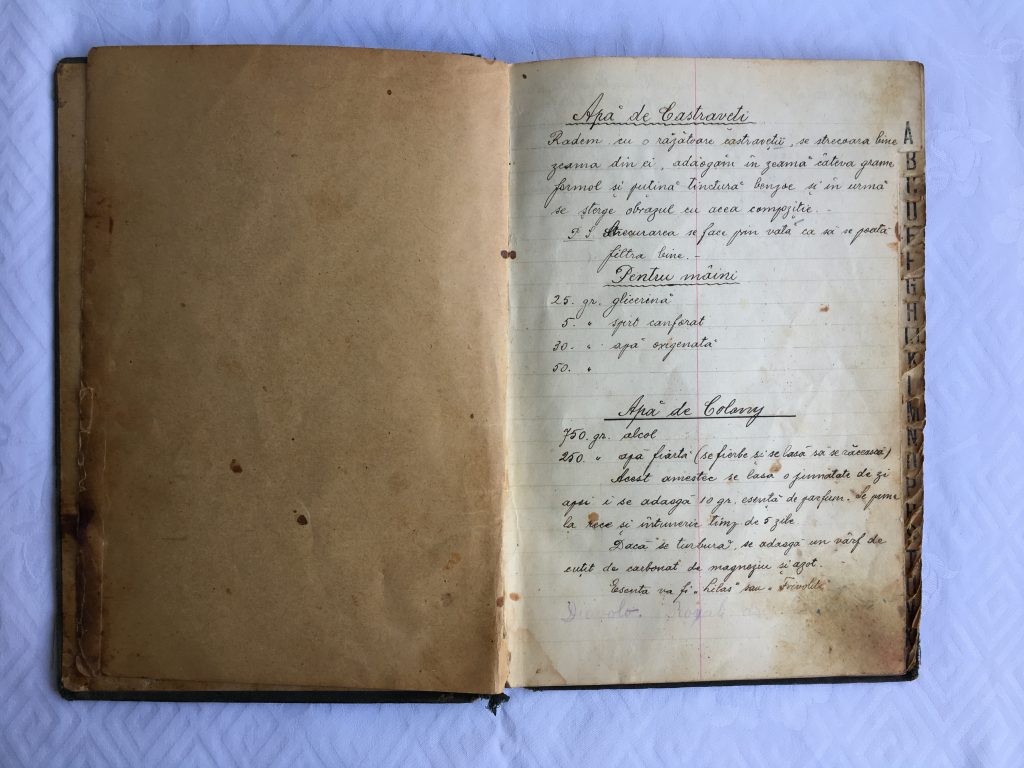 Apă de Castraveti
Radem cu o răzătoare castraveții, se strecoara bine
zeama din ei, adăogăm în zeamă câteva grame
formol și puțină tinctură benjoe și în urmă
se șterge obrazul cu acea compoziție. -
P. S. Strecurarea se face prin vată ca să se poată
filtra bine. -
Pentru mâini
25. gr. glicerină
5. " spirt canforat
30. " apă oxigenată
50. "
Apă de Colony
750. gr. alcol
250. " apă fiartă (se fierbe și se lasă să se răcească)
Acest amestec se lasă o jumatate de zi
apoi i se adaogă 10 gr. esență de parfum. Se pune
la rece și întuneric timp de 5 zile.
Dacă se turbură, se adaogă un vârf de
cuțit de carbonat de magneziu și azot.
Esenta va fi „Lilas" sau „
Diavolo
A
B
C
D
E
F
G
H
I
K
L
M
N